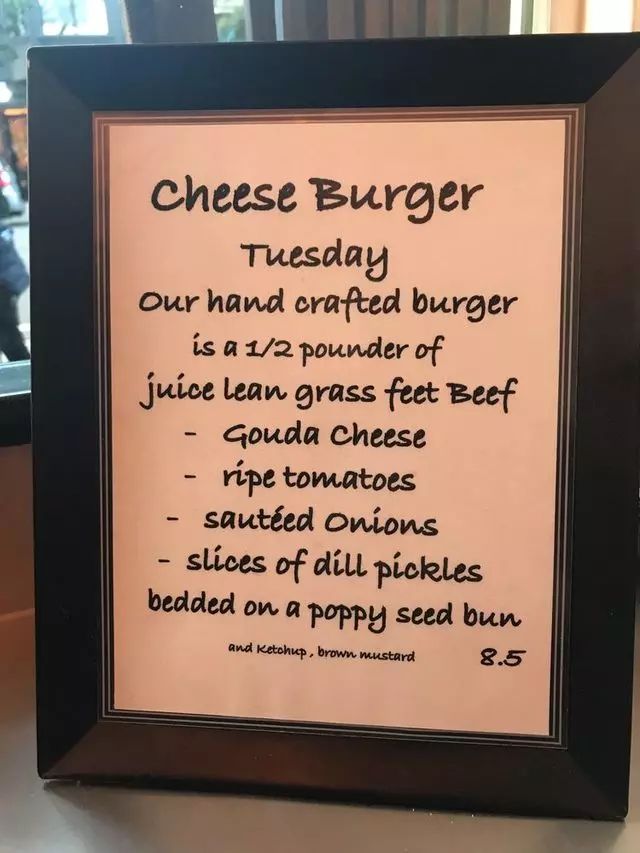 Cheese Burger
Tuesday
Our hand crafted burger
is a 1/2 pounder of
juice lean grass feet Beef
- Gouda Cheese
- ripe tomatoes
- sautéed Onions
- slices of dill pickles
bedded on a poppy seed bun
and Ketchup, brown mustard 8.5